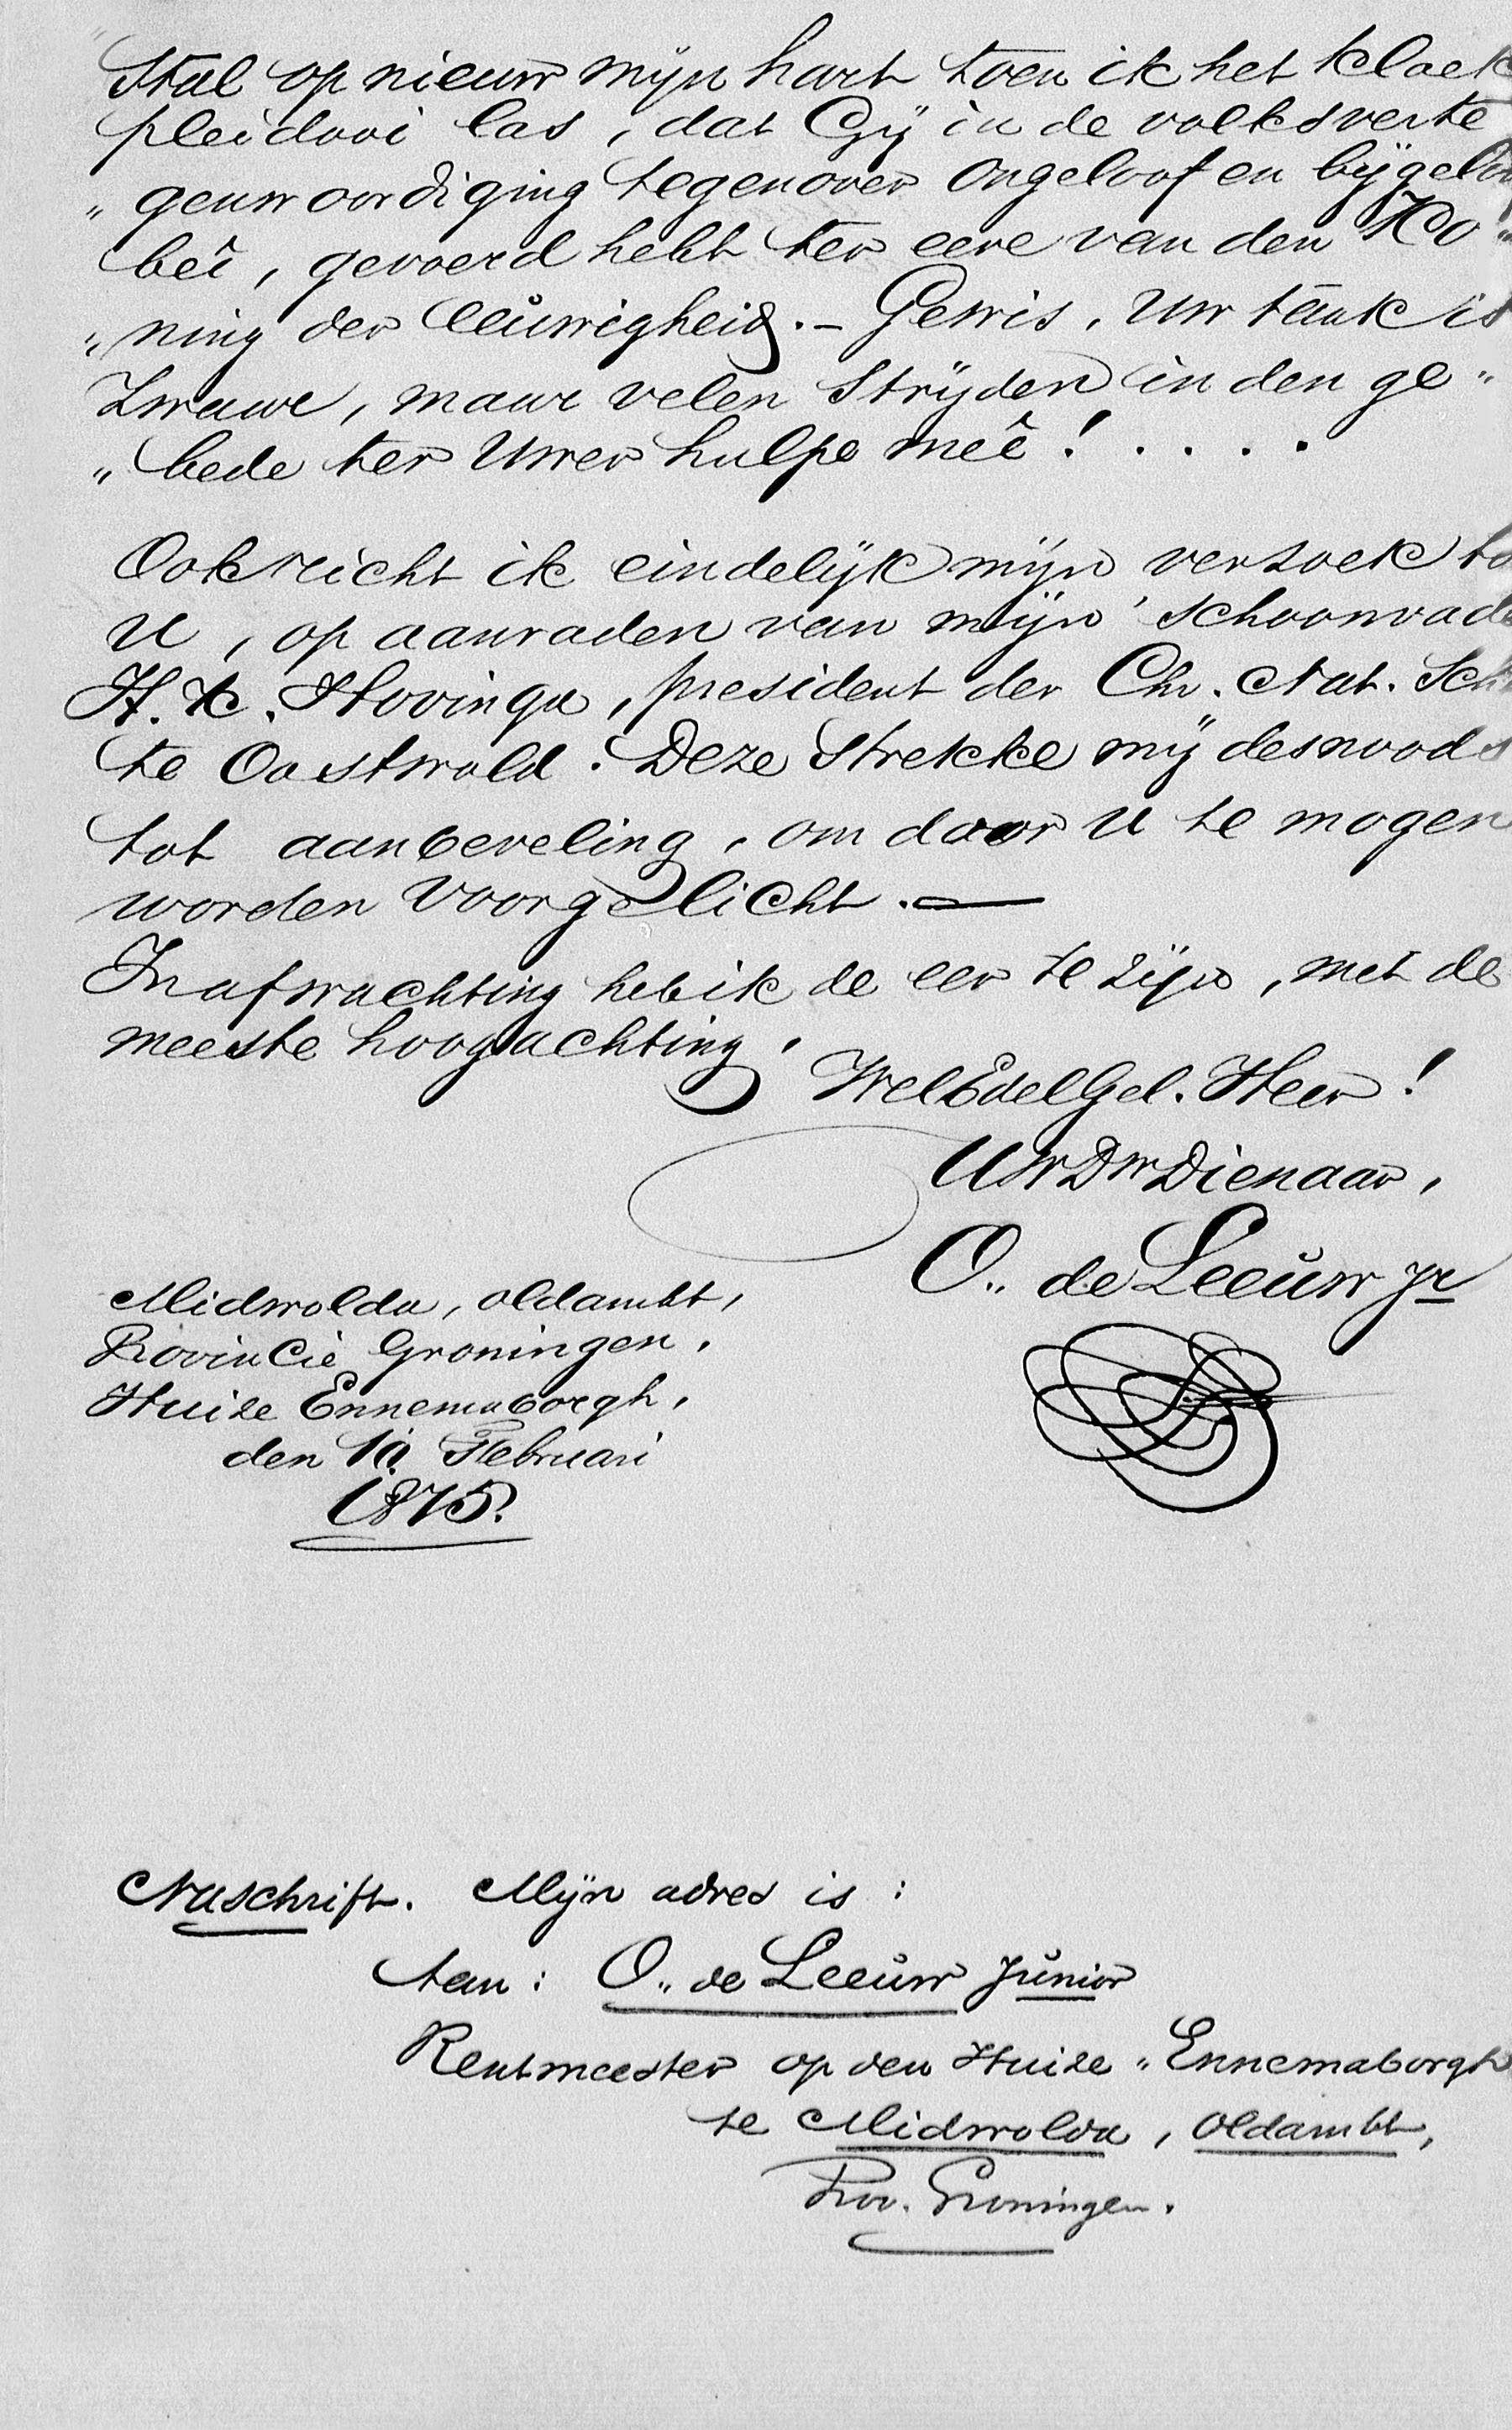 Stal op nieuw mijn hart toen ik het kloek
pleidooi las, dat Gij in de volksverte
„genwoordiging tegenover ongeloof en bijgeloo
beî, gevoerd hebt ter eere van den Ko„
„ning der eeuwigheid. – Gewis, Uw taak is
Zwaar, maar velen strijden in den ge„
„bede ter Uwer hulpe meê! . . . .
Ook richt ik eindelijk mijn verzoek to
U, op aanraden van mijn schoonvade
H. K. Hovinga, president der Chr. Nat. Sch
te Oostwold. Deze strekke mij desnoods
tot aanbeveling, om door U te mogen
worden voorgelicht. —
In afwachting heb ik de eer te zijn, met de
meeste hoogachting,
WelEdelGel. Heer!
UwDwDienaar,
O. de Leeuw Jr
Midwolda, Oldambt,
Provincie Groningen,
Huize Ennemaborgh,
den Februari
1875.
Naschrift. Mijn adres is:
Aan: O. de Leeuw Junior
Rentmeester op den Huize „Ennemaborgh
te Midwolda, Oldambt,
Prov. Groningen.